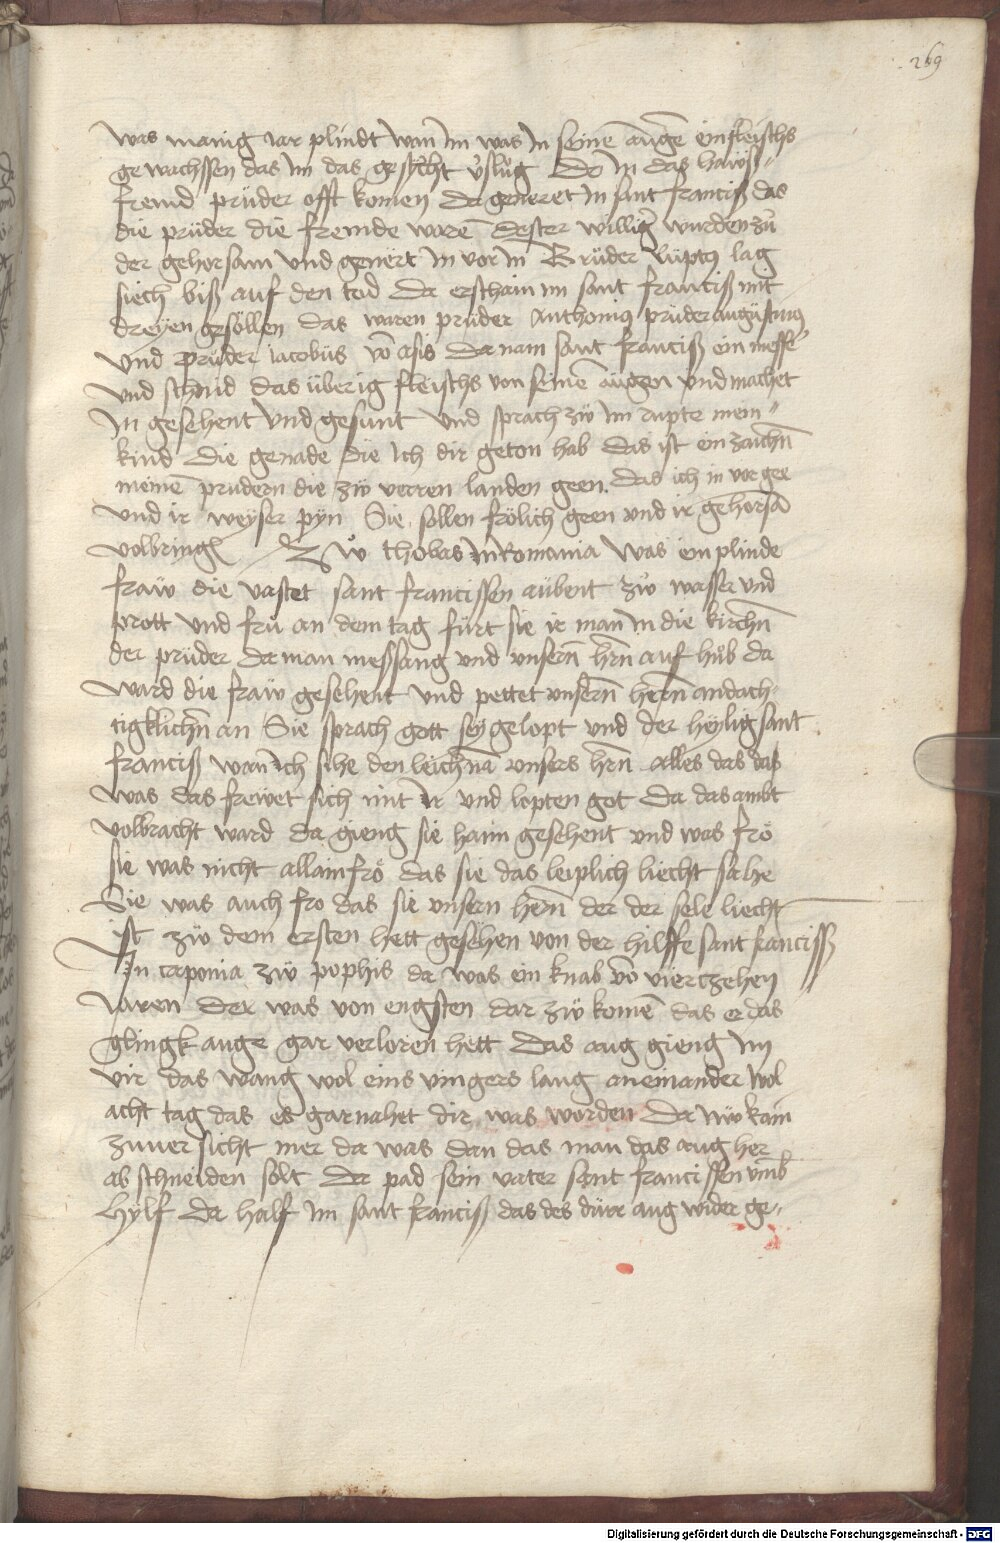 269
was manig Iar plindt wan im was in seinē augē ein fleischs
gewachssen das im das gesicht v̓slug Do in das haws״
fremd prüder offt komen da generet in sant franciß das
die prüder die fremde warē dester willig̓ wurden zů
der gehorsam und genert in vor in Brüder lag
siech biß auf den tod Da erschain im sant franciß mit
dreyen gesöllen das waren prüder Anthoniꝰ prüder augustinꝰ
und prüder iacobüs vō asis Da nam sant franciß ein messē
und schnid das überig fleischs von seinē augen und machet
in gesehent und gesunt und sprach zw̎ im rupte mein״
kind die genade die ich dir geton hab das ist ein zaichn̄
meinē prudern die zw̎ verren landen geen. das ich in vor gee
und ir weyser pyn Sie sollen frölich geen und ir gehorsā
volbringen Zw̎ thobas in Romania was ein plinde
fraw̎ die vastet sant francissen aubent zw̎ wasser und
prott und frů an dem tag fürt sie ir man in die kirchn̄
der prüder da man meß sang und unsern̄ hr̄n auf hůb da
ward die fraw̎ gesehent und pettet unsern̄ herrn̄ andach-
tigklichn̄ an Sie sprach gott sey gelopt und der heylig sant
franciß wan ich sihe den leichnā unsers hr̄n alles das das
was das frewet sich mit ir und lopten got Da das ambt
volbracht ward da gieng sie haim gesehent und was frö
sie was nicht allain frö das sie das leiplich liecht sahe
Sie was auch fro das sie unsern hern̄ der der sele liecht
ist zw̎ dem ersten hett gesehen von der hilffe sant francisß
In caponia zw̎ pophis da was ein knab vō viertzehen
Iaren Der was von engsten dar zw̎ komē das er das
glingk auge gar verloren hett Das aug gieng im
vir das wang wol eins vingers lang aneinander wol
acht tag das es gar nahet dir was worden Da nw̎ kain
zuuersicht mer da was dan das man das aug her
ab schneiden solt Da pad sein vater sant francissen umb
hylf Da half im sant franciß das des dürr aug wider ge״
Digitalisierung gefördert durch die Deutsche Forschungsgemeinschaft - DFG